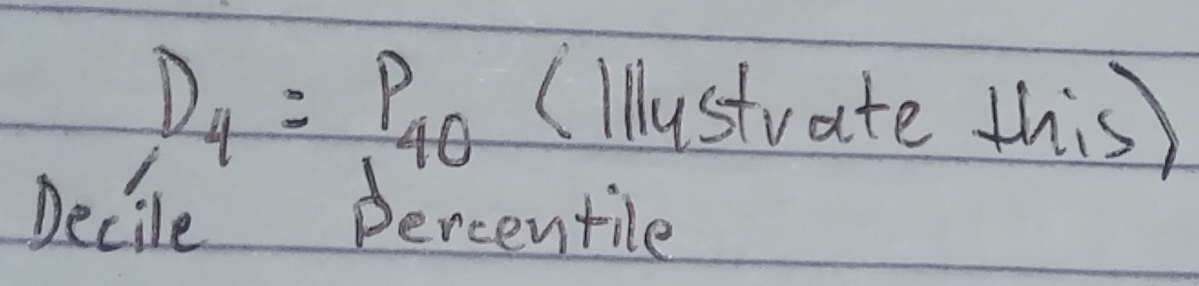 D₄ = P₄₀ (Illustrate this)
Decile Percentile